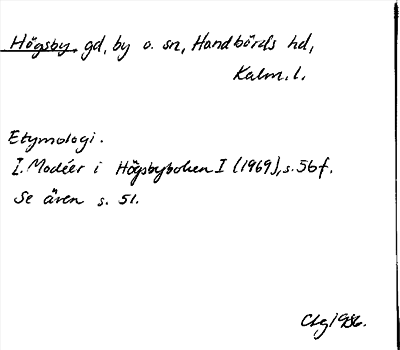 Högsby, gd, by o. sn, Handbörds hd,
Kalm. l.
Etymologi.
I. Modéer i Högsbyboken I (1969), s. 56 f.
Se även s. 51.
1986.